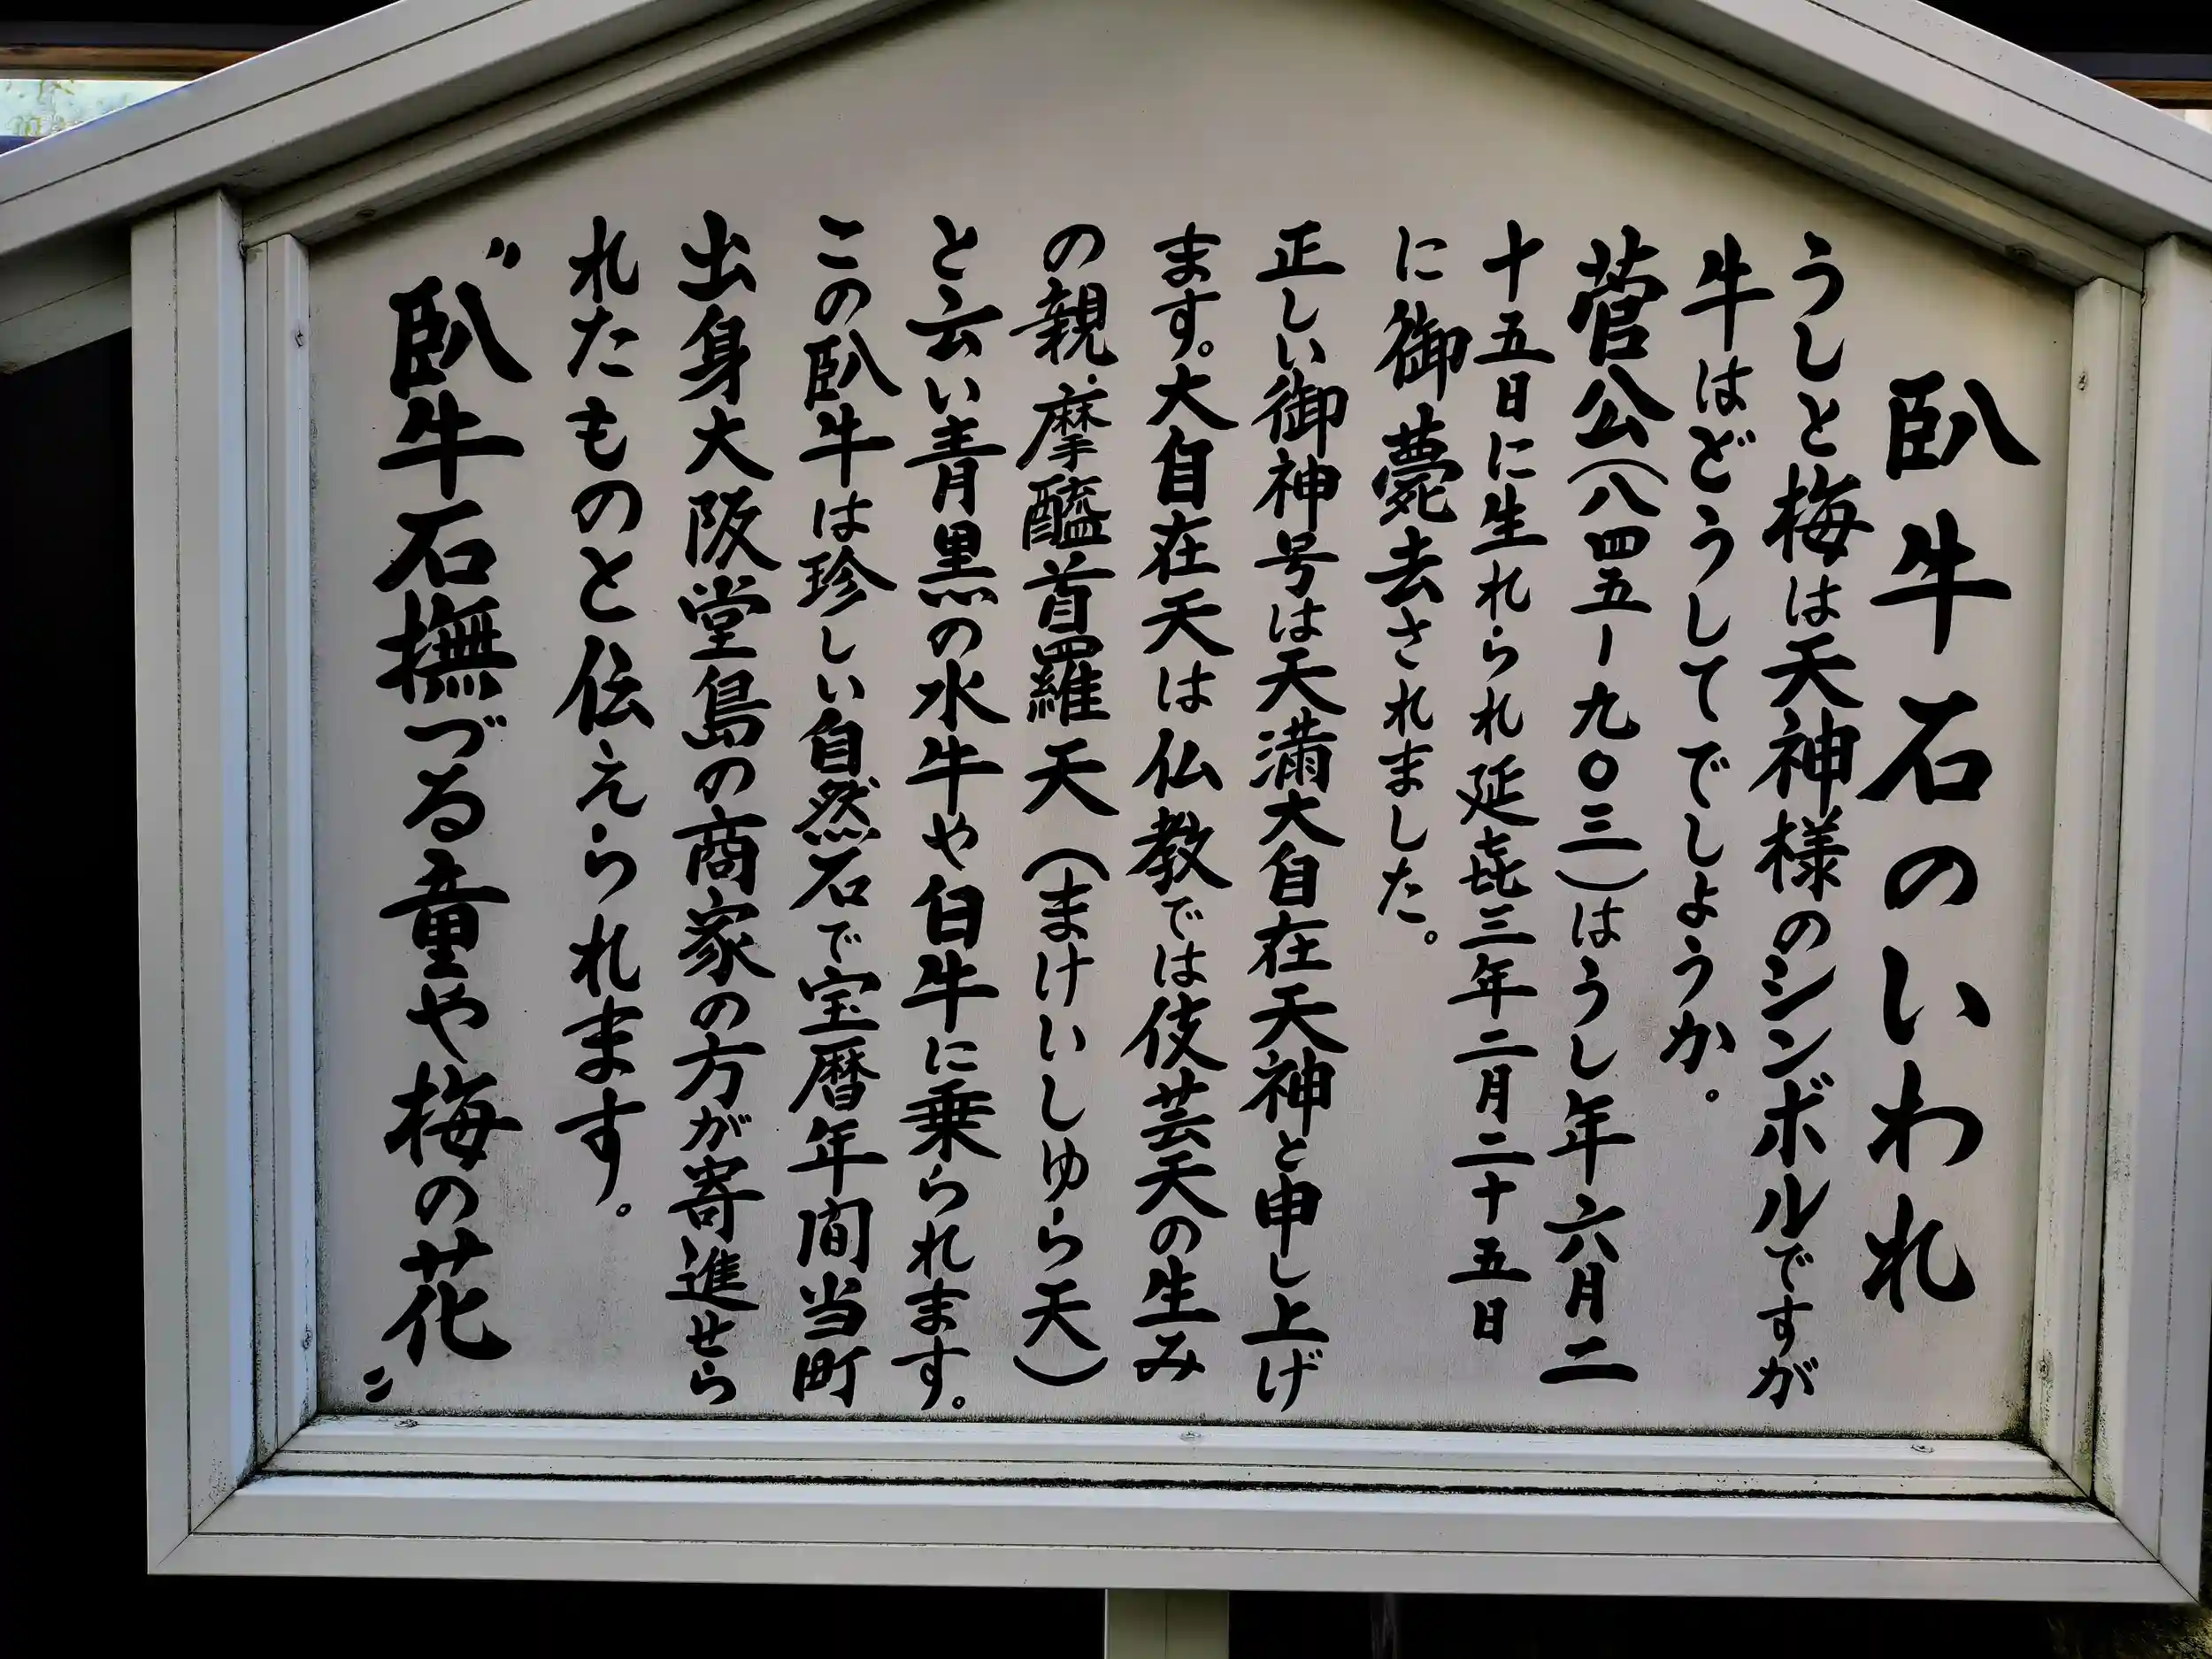 臥牛石のいわれ
うしと梅は天神様のシンボルですが
牛はどうしてでしようか。
菅公(八四五ー九〇三)はうし年六月二
十五日に生れられ延㐂三年二月二十五日
に御薨去されました。
正しい御神号は天満大自在天神と申し上げ
ます。大自在天は仏教では伎芸天の生み
の親、摩醯首羅天(まけいしゆら天)
と云い青黒の水牛や白牛に乗られます。
この臥牛は珍しい自然石で宝暦年間当町
出身大阪堂島の商家の方が寄進せら
れたものと伝えられます。
〃臥牛石撫づる童や梅の花〃